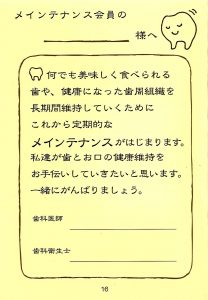 メインテナンス会員の
様へ
何でも美味しく食べられる
歯や、健康になった歯周組織を
長期間維持していくために
これから定期的な
メインテナンスがはじまります。
私達が歯とお口の健康維持を
お手伝いしていきたいと思います。
一緒にがんばりましょう。
歯科医師
歯科衛生士
16